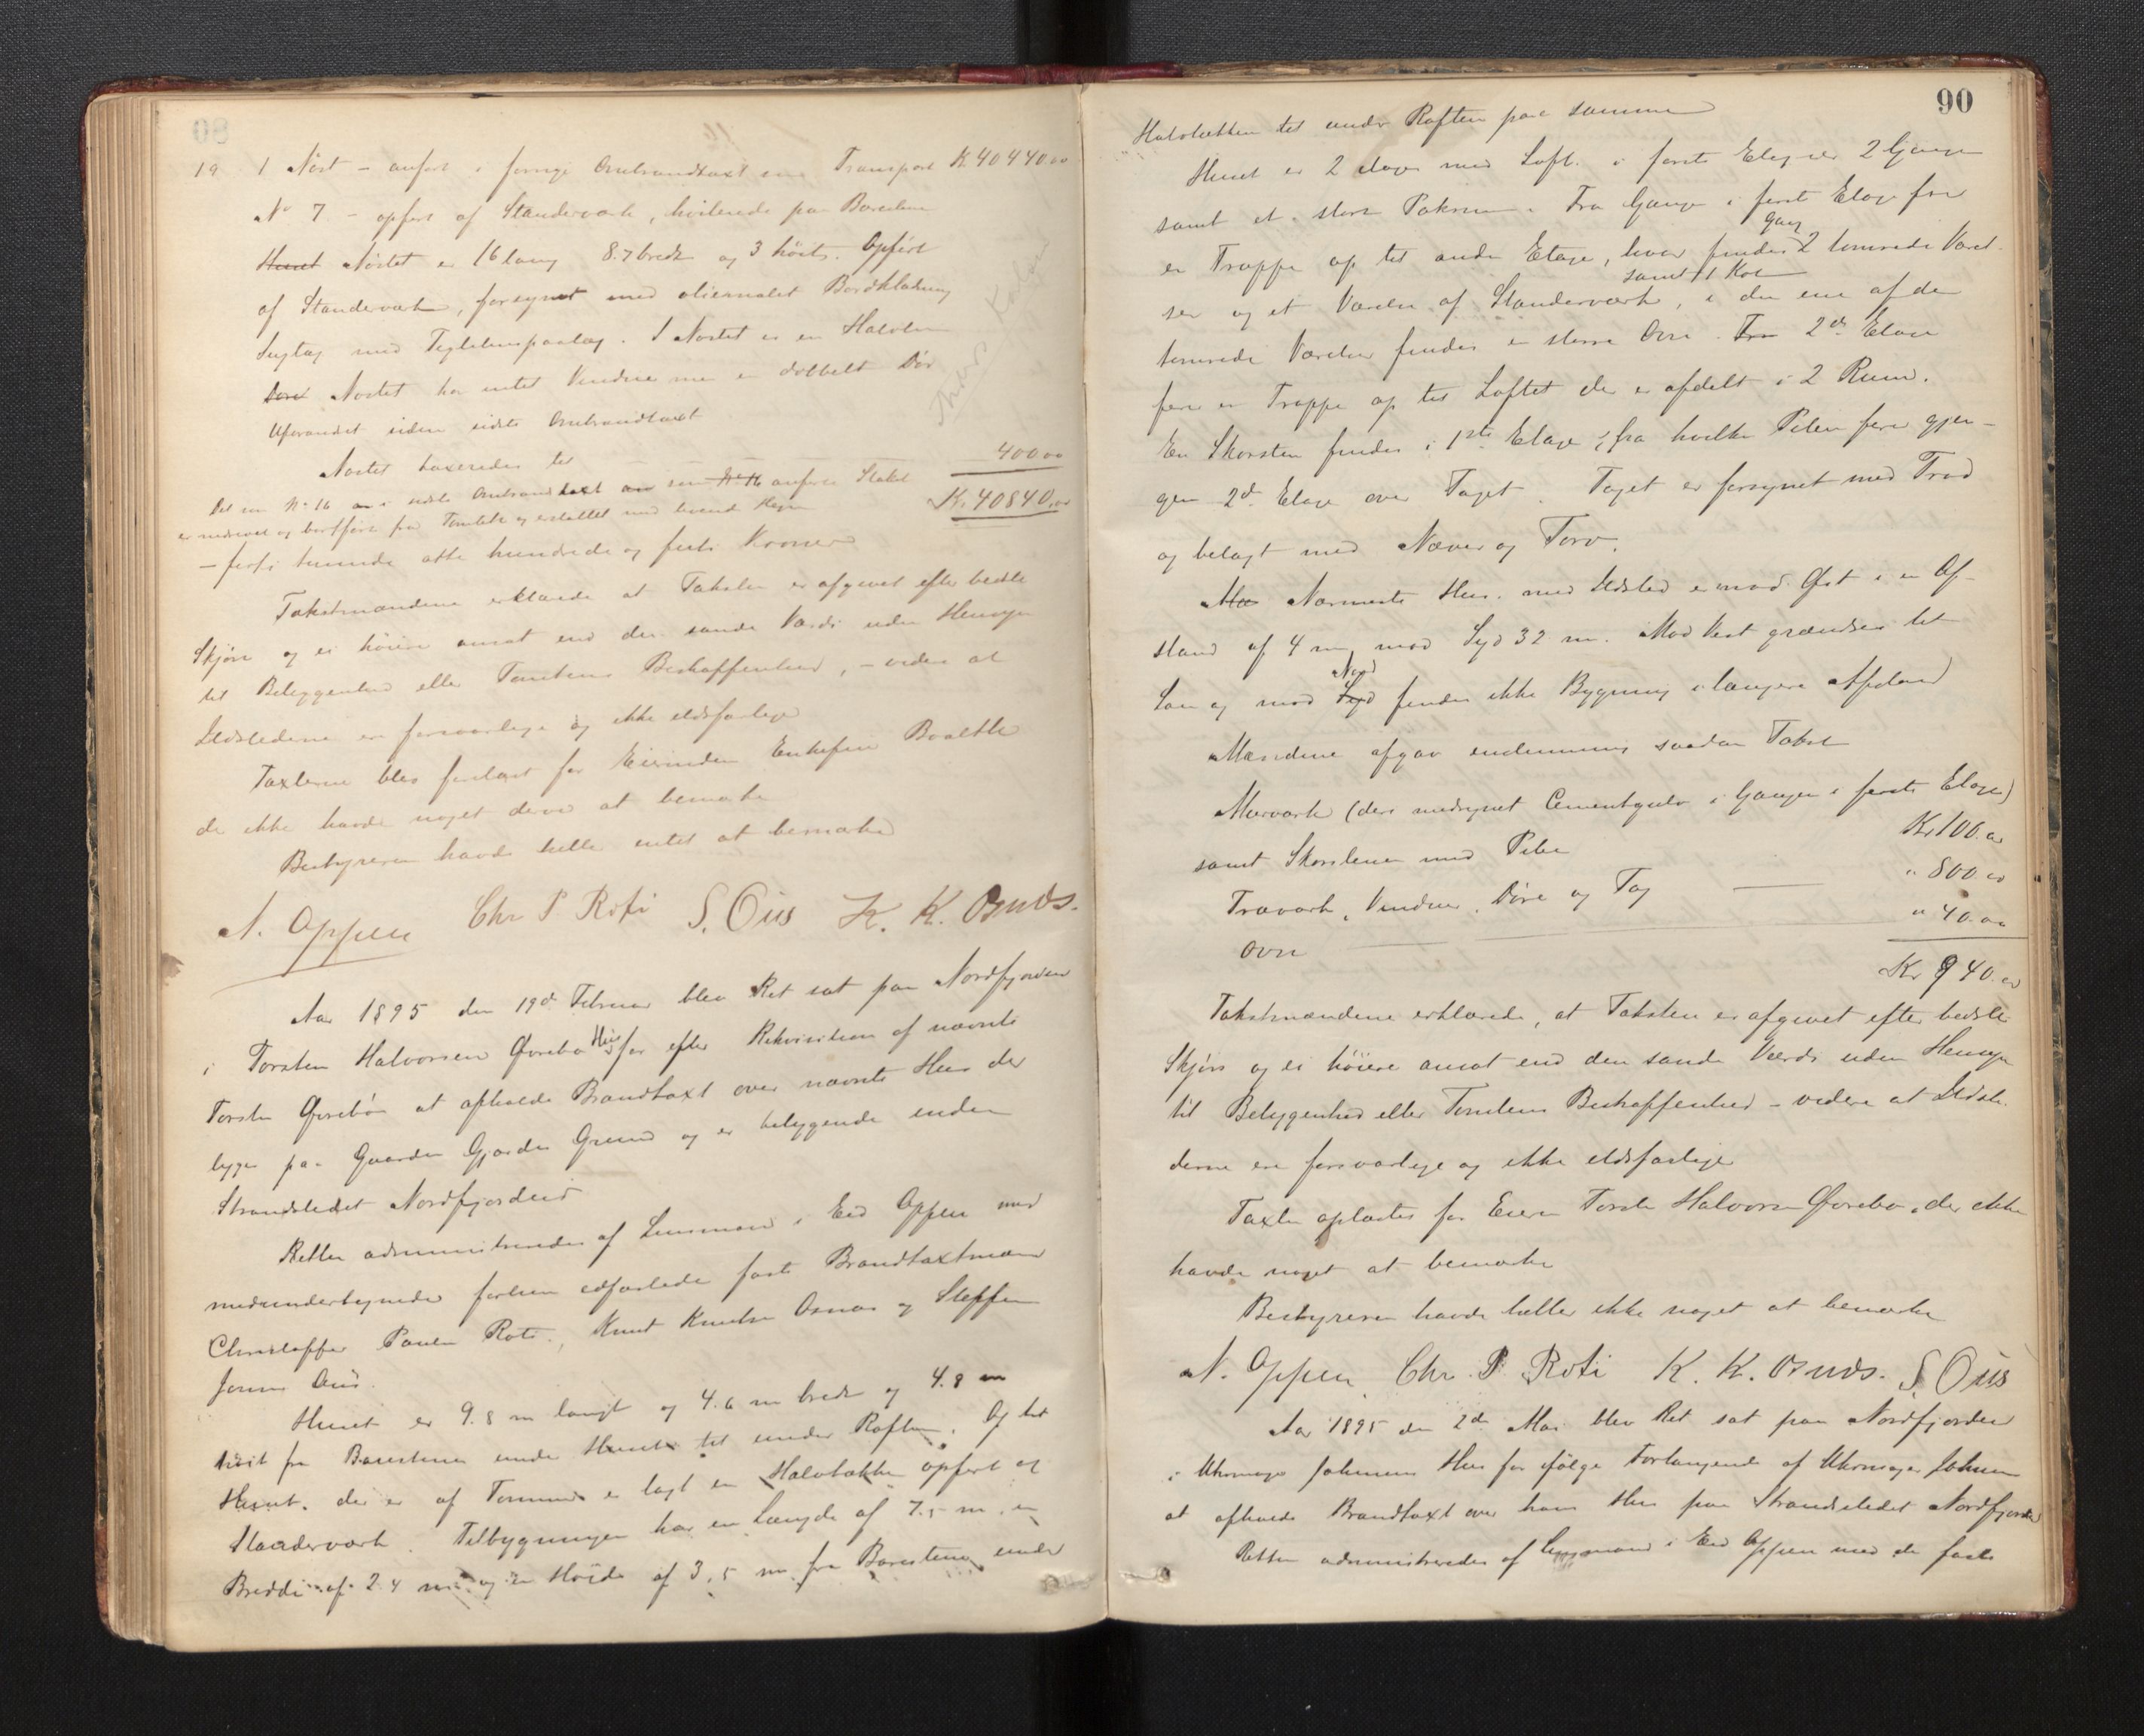 19 1 Nøst - anført i forrige Ombrandtaxt som Transport Kr 40440.00
No 7. - opført af Standerværk, hvilende paa Barestene
Huset Nøstet er 16 lang 8.7 bredt og 3 høit. Opført
af Standerværk, forsynet med oliemalet Bordklædning
Sugtag med Teglstenspaalæg. I Nøstet er en Halvlem
Døre Nøstet har intet Vindue men en dobbelt Dør
Uforandret siden sidste Ombrandtaxt
Nøstet taxeredes til 400.00
Det som No 16 i sidste Ombrandtaxt som No 16 anførte Stakit Kr. 40840.00
er nedrevet og bortført fra Tomten og erstattet med levende Hegn
- firti tusinde otte hundrede og firti Kroner
Takstmændene erklærede at Taksten er afgivet efter bedste
Skjøn og ei høiere ansat end den sande Værdi uden Hensyn
til Beliggenhed eller Tomtens Beskaffenhed, - videre at
Ildstederne er forsvarlige og ikke ildsfarlige
Taxterne blev forelæst for Eierinden Enkefru
der ikke havde noget derved at bemærke
Bestyreren havde heller intet at bemærke
N. Oppen Chr P Roti S. Ous K. K. Osnæs.
Aar 1895 den 19de Februar blev Ret sat paa Nordfjordeid
i Torsten Halvorsen Øvrebø Hus for efter Rekvisition af nævnte
Torsten Øvrebø at afholde Brandtaxt over nævnte Hus der
ligger paa Gaarden Gjerdes Grund og er beliggende inden
Strandstedet Nordfjordeid
Retten administreredes af Lensmand i Eid Oppen med
medundertegnede forhen edfæstede faste Brandtaxtmænd
Christoffer Paulsen Roti, Knut Knutsen Osnæs og Steffen
Jonsen Ous.
Huset er 9.8 m langt og 4.6 m bredt og 4.8 m
høit fra Barestene under Huset til under Raften. Og til
Huset. der er af Tømmer er lagt en Halvtække opført af
Standerværk. Tilbygningen har en Længde af 7.5 m, en
Bredde af 2.4 m og en Høide af 3.5 m. fra Barestene under
90
Halvtækken til under Raften paa samme
Huset er 2 etager med Loft. i første Etage er 2 Gange
samt et større Pakrum. Fra Gangen i først Etage fører
Gang
en Trappe op til anden Etage, hvor findes 2 tømrede Værel-
samt 1 Kot
ser og et Værelse af Standerværk, i den ene af de
tømrede Værelser findes en større Ovn. Fra 2den Etage
fører en Trappe op til Loftet der er afdelt i 2 Rum.
En Skorsten findes i 1ste Etage, fra hvilken Piben fører gjen-
gen 2d Etage over Taget. Taget er forsynet med Trod
og belagt med Næver og Torv.
Ma Nærmeste Hus med Ildsted er mod Øst i en Af-
stand af 4 m, mod Syd 32 m. Mod Vest grændser til
Nord
Søen og mod Syd findes ikke Bygning i længere Afstand
Mændene afgav saadan Takst
Murværk (deri medregnet Cementgulv i Gangen i første Etage)
samt Skorstenen med Pibe Kr 100.00
Træværk, Vinduer, Døre og Tag — " 800.00
Ovn " 40.00
Kr 940.00
Takstmændene erklærede, at Taksten er afgivet efter bedste
Skjøn og ei høiere ansat end den sande Værdi uden Hensyn
til Beliggenhed eller Tomtens Beskaffenhed - videre at Ildste-
derne ere forsvarlige og ikke ildsfarlige
Taxten oplæstes for Eieren Torsten Halvorsen Øvrebø, der ikke
havde noget at bemærke
Bestyreren havde heller ikke noget at bemærke
N. Oppen. Chr. P. Roti K. K. Osnæs. S. Ous
Aar 1895 den 2de Mai blev Ret sat paa Nordfjordeid
i Uhrmager Johnsens Hus for ifølge Forlangende af Uhrmager Johnsen
at afholde Brandtaxt over hans Hus paa Strandstedet Nordfjordeid
Retten administreredes af Lensmand i Eid Oppen med de faste